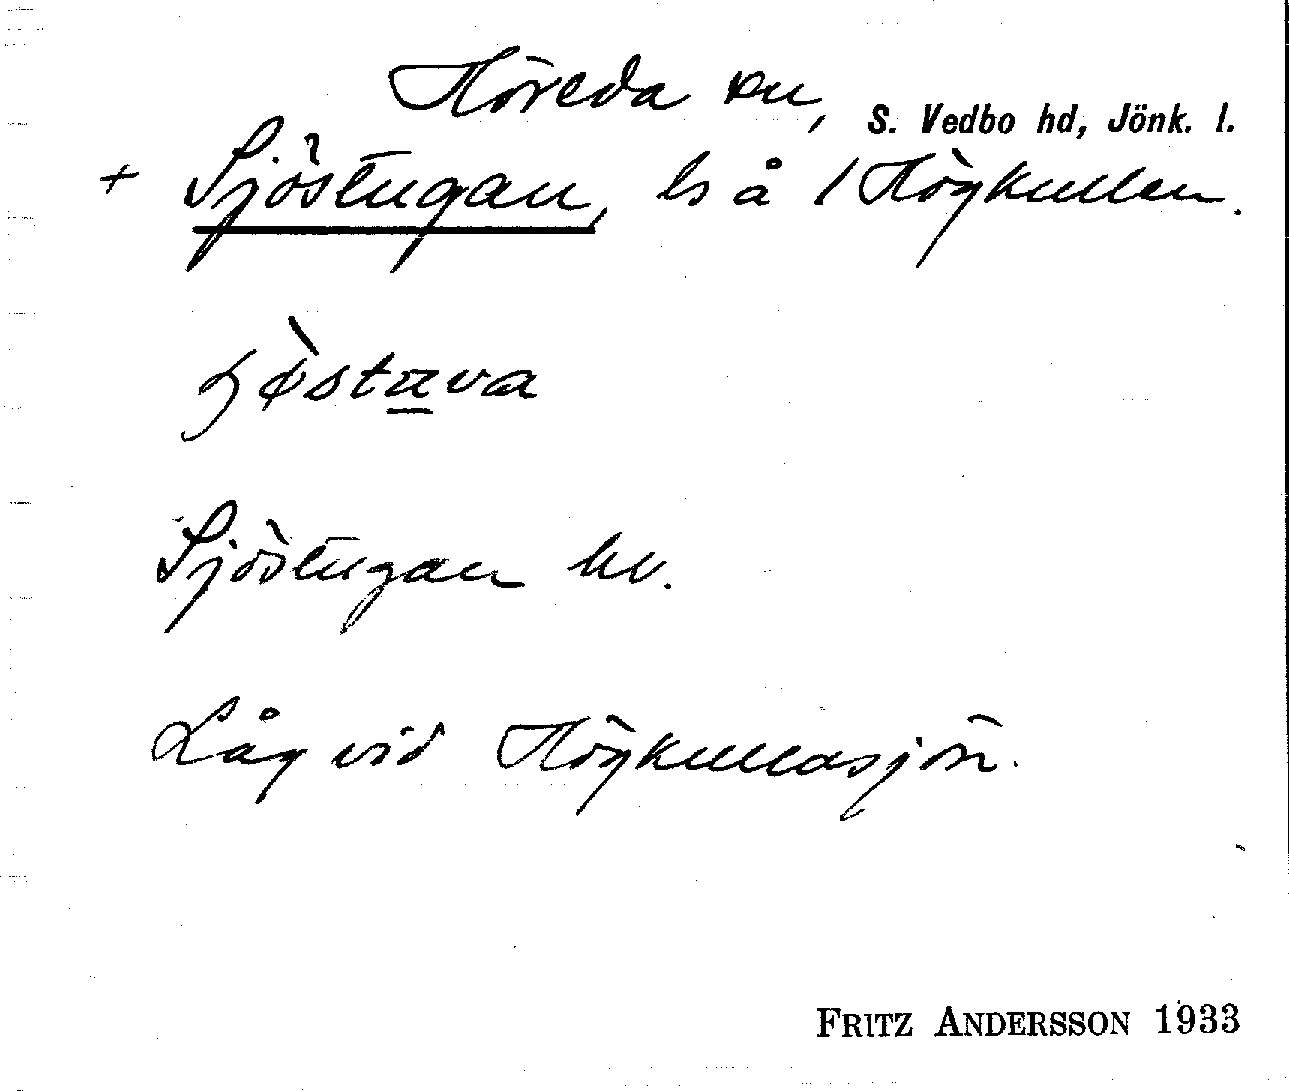 Höreda sn, S. Vedbo hd, Jönk. l.
+ Sjöstugan, ls å 1 Högkullen.
Sjöstugan hv.
Låg vid Högkullasjön.
FRITZ ANDERSSON 1933